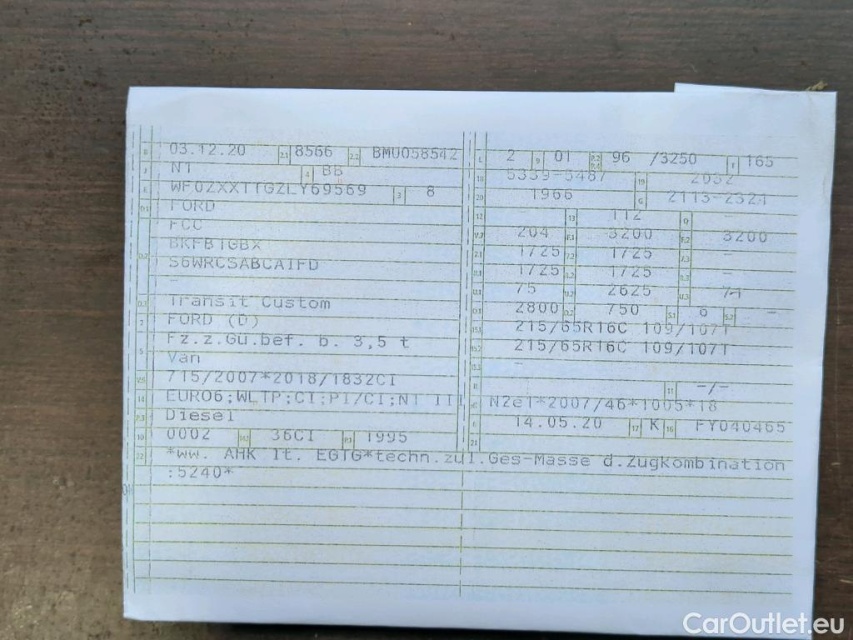 B 03.12.20 2.1 8566 2.2 BMU058542 L 2 9 01 96 /3250 T 165
J N1 4 BB 18 5339-5487 19 2032
E WF0ZXXTTGZLY69569 3 8 20 1966 G 2113-2324
D.1 FORD 12 - 13 112 Q -
FCC V.7 204 F.1 3200 F.2 3200
BKFB1GBX 7.1 1725 7.2 1725 7.3 -
S6WRCSABCA1FD 8.1 1725 8.2 1725 8.3 -
- U.1 75 U.2 2625 U.3
D.3 Transit Custom O.1 2800 O.2 750 S.1 S.2 -
2 FORD (D) 15.1 215/65R16C 109/107T
5 Fz.z.Gü.bef. b. 3,5 t 15.2 215/65R16C 109/107T
Van -
V.9 715/2007*2018/1832CI R 11 -/-
14 EURO6;WLTP;CI;PI/CI;N1 II K N2e1*2007/46*1005*18
P.3 Diesel 6 14.05.20 17 K 16 FY040465
10 0002 14.1 36CI P.1 1995 21
22 *ww. AHK lt. EGTG*techn.zul.Ges-Masse d.Zugkombination
:5240*
CarOutlet.eu